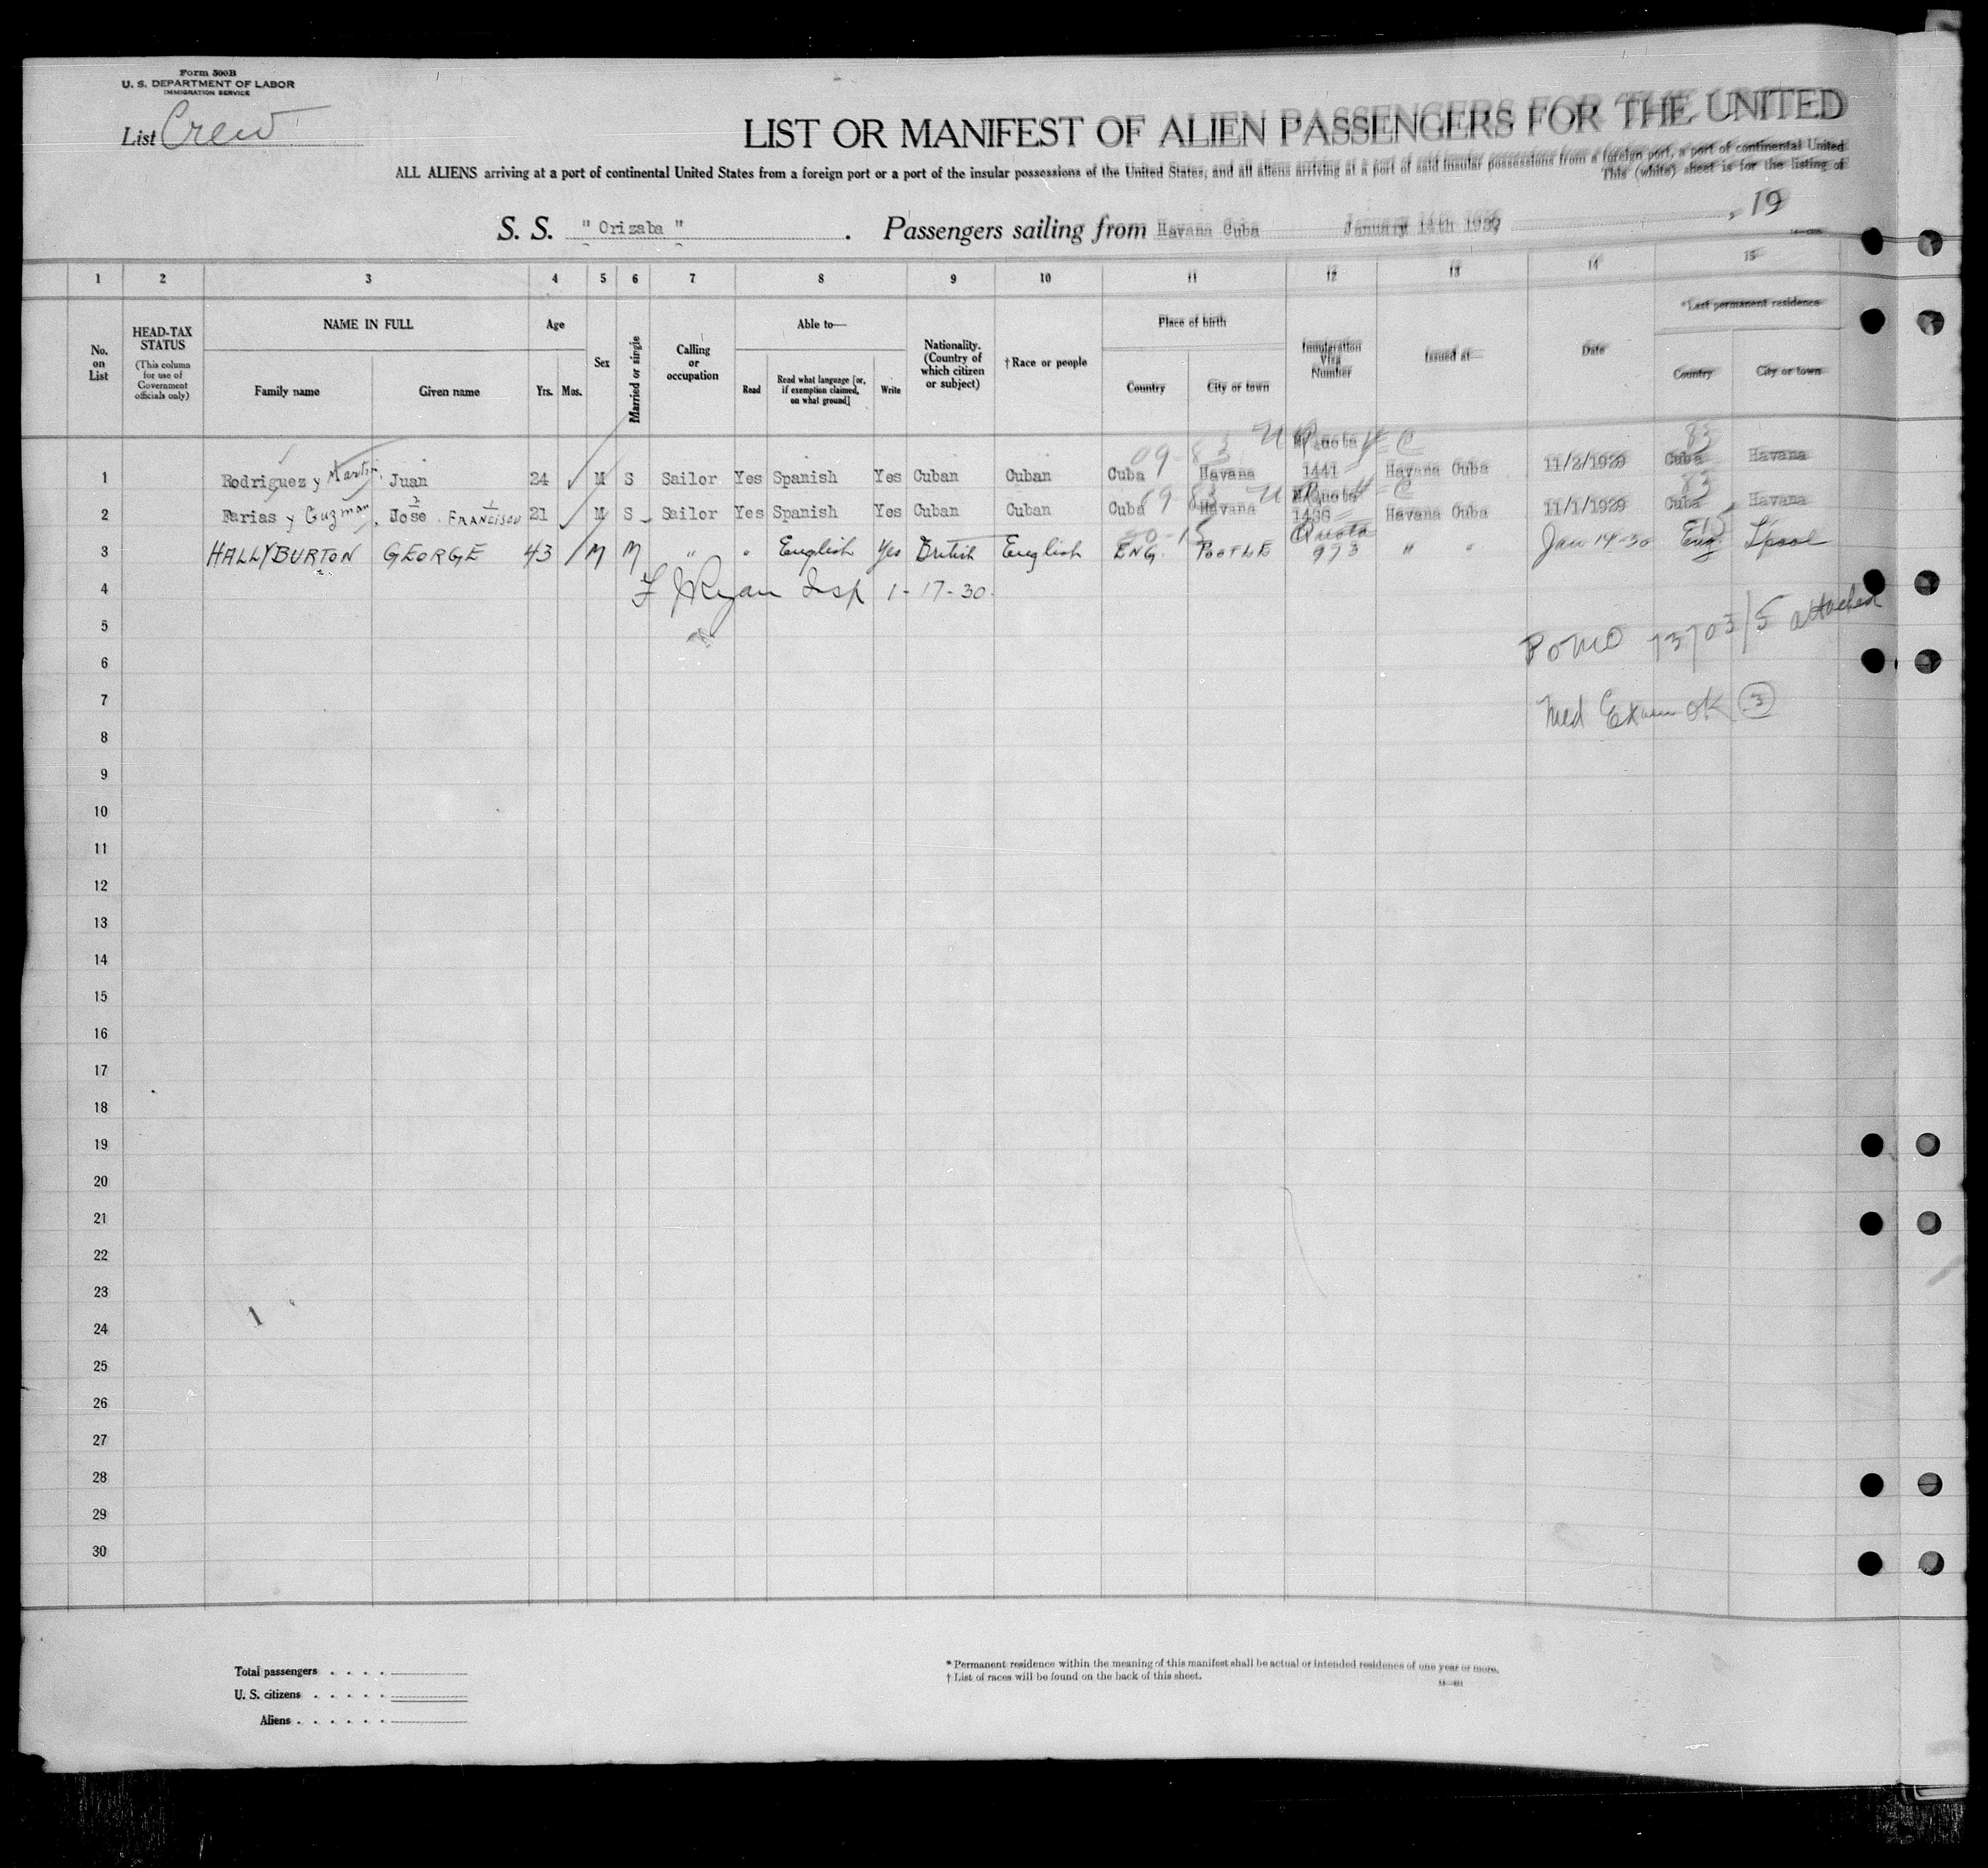 Form 500B
U. S. DEPARTMENT OF LABOR
IMMIGRATION SERVICE
List Crew
LIST OR MANIFEST OF ALIEN PASSENGERS FOR THE UNITED
ALL ALIENS arriving at a port of continental United States from a foreign port or a port of the insular possessions of the United States, and all aliens arriving at a port of said insular possessions from a foreign port, a port of continental United
This (white) sheet is for the listing of
S. S. " Orizaba " . Passengers sailing from Havana Cuba January 14th 19 , 19
1 2 3 4 5 6 7 8 9 10 11 12 13 14 15
No. on List
HEAD-TAX STATUS (This column for use of Government officials only)
NAME IN FULL Family name Given name
Age Yrs. Mos.
Sex
Married or single
Calling or occupation
Able to— Read Read what language [or, if exemption claimed, on what ground] Write
Nationality. (Country of which citizen or subject)
†Race or people
Place of birth Country City or town
Immigration Visa Number
Issued at—
Date
*Last permanent residence Country City or town
09-83 83
1 Rodriguez y Martin, Juan 24 M S Sailor Yes Spanish Yes Cuban Cuban Cuba Havana 1441 Havana Cuba 11/2/1929 Cuba Havana
2 Farias y Guzman, Jose . FRANCISCO 21 M S Sailor Yes Spanish Yes Cuban Cuban Cuba Havana Havana Cuba 11/1/1929 Cuba Havana
3 HALLYBURTON GEORGE 43 M M " " English Yes British English ENG. Quota 973 " " Jan 14-30 Eng. L'pool
4 F J Ryan Insp 1-17-30.
5 attached
6
7 Med Exam OK 3
8
9
10
11
12
13
14
15
16
17
18
19
20
21
22
23
24
25
26
27
28
29
30
Total passengers . . . .
U. S. citizens . . . . .
Aliens . . . . . .
* Permanent residence within the meaning of this manifest shall be actual or intended residence of one year or more.
† List of races will be found on the back of this sheet.